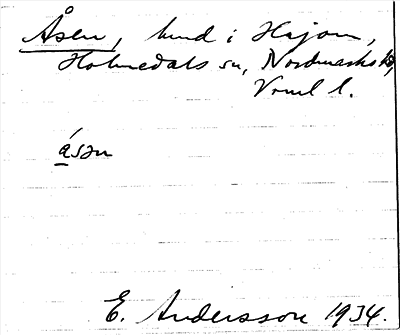 Åsen, hund i Hajom,
Holmedals sn, Nordmarks hd,
Vrml l.
åsən
E. Andersson 1934.